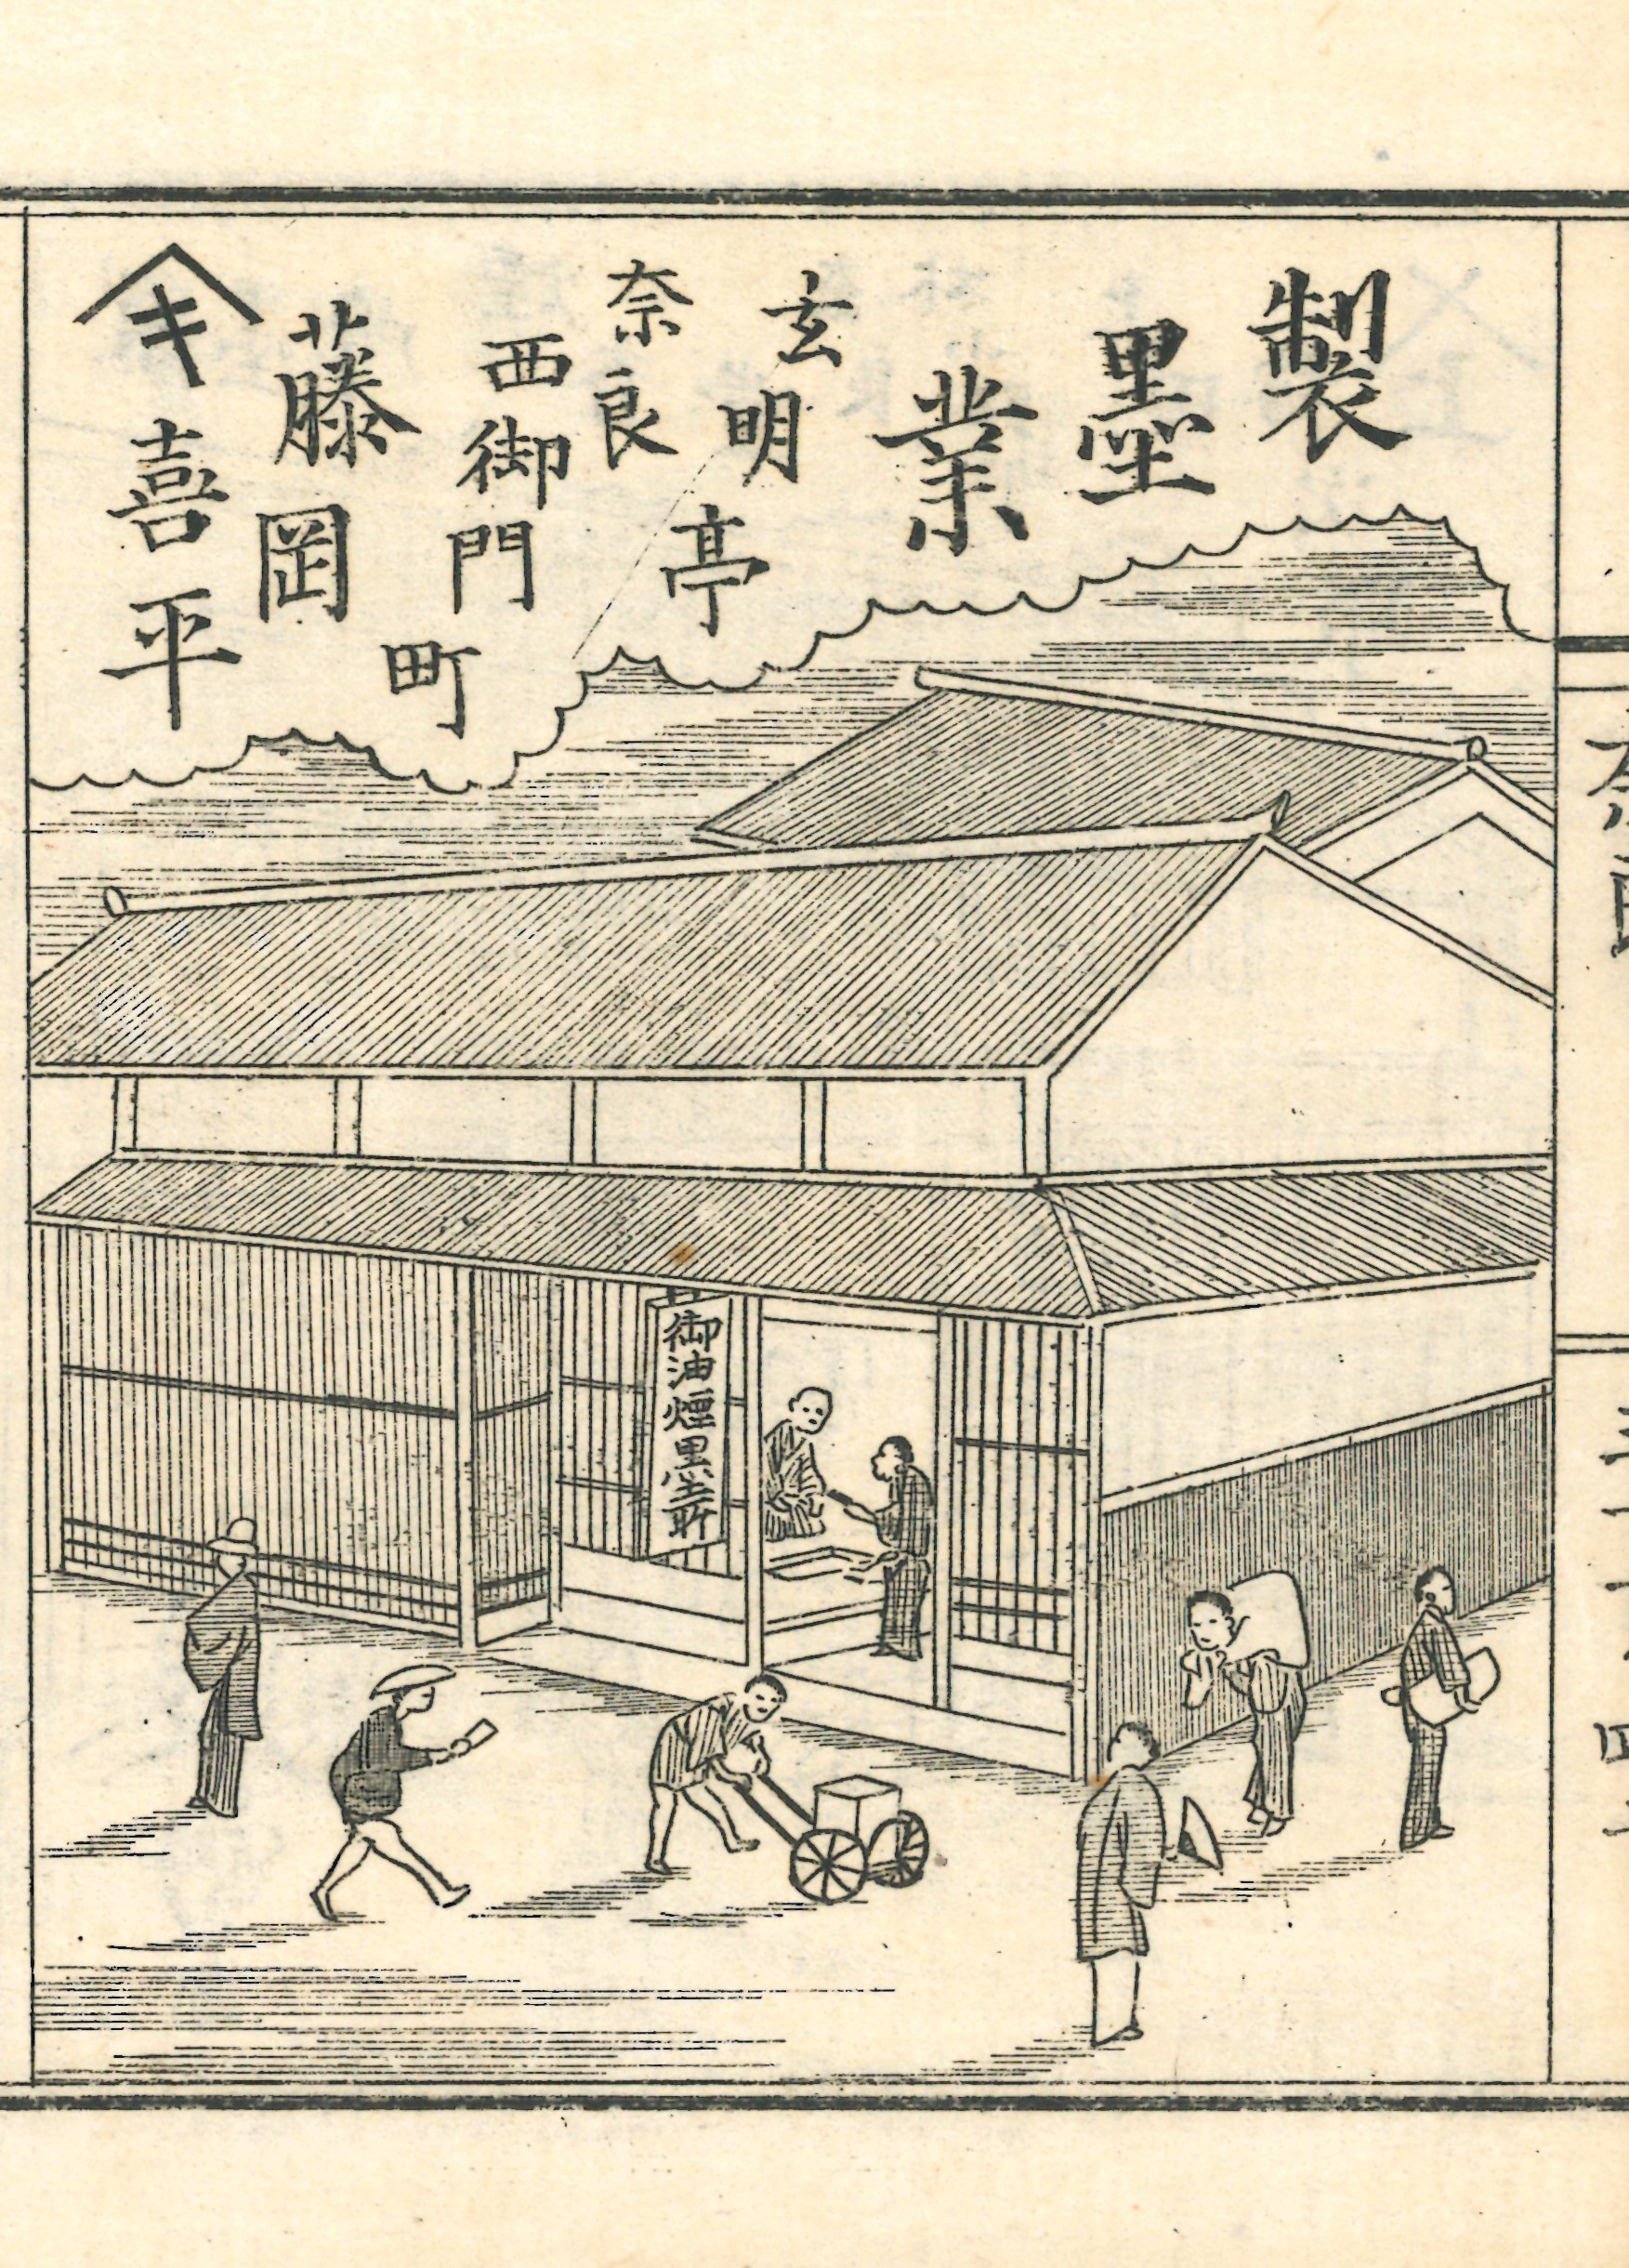 製墨業
玄明亭
奈良
西御門町
藤岡
喜平
キ
御油煙墨所